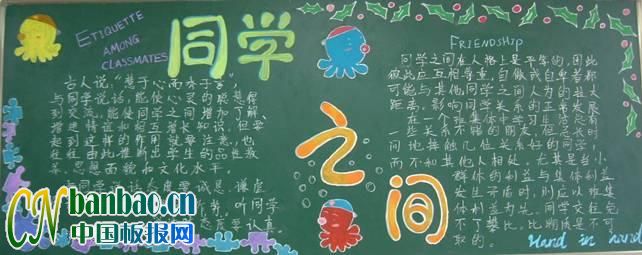 ETIQUETTE
AMONG
CLASSMATES
同学
之
间
古人说，"慧于心而秀于言"，
与同学说话，能使心灵的联想得
到交流，能使同学之间增加了解、
增进情谊和相互增长知识。但要
起到这样的作用就要注意，也
往往由此推断出学生的品性教
养、思想面貌和文化水平。
同学说话态度要诚恳、谦虚
听同学
态度要认真。
FRIENDSHIP
同学之间在人格上是平等的，因此
彼此应互相尊重，自傲或自卑者都
可能与其他同学之间人为的拉大
距离，影响同学关系的正常发展
在一个班集体中学习生活总有
一些关系不错的朋友，但是长时
间地接触几位关系好的同学，
而不和其他人相处。尤其是当小
群体的利益与集体利益
发生矛盾时，则应以班集
体利益为先。同学交往免
不了攀比，比期质是不可
取的。
Hand in hand
CN banbao.cn
中国板报网